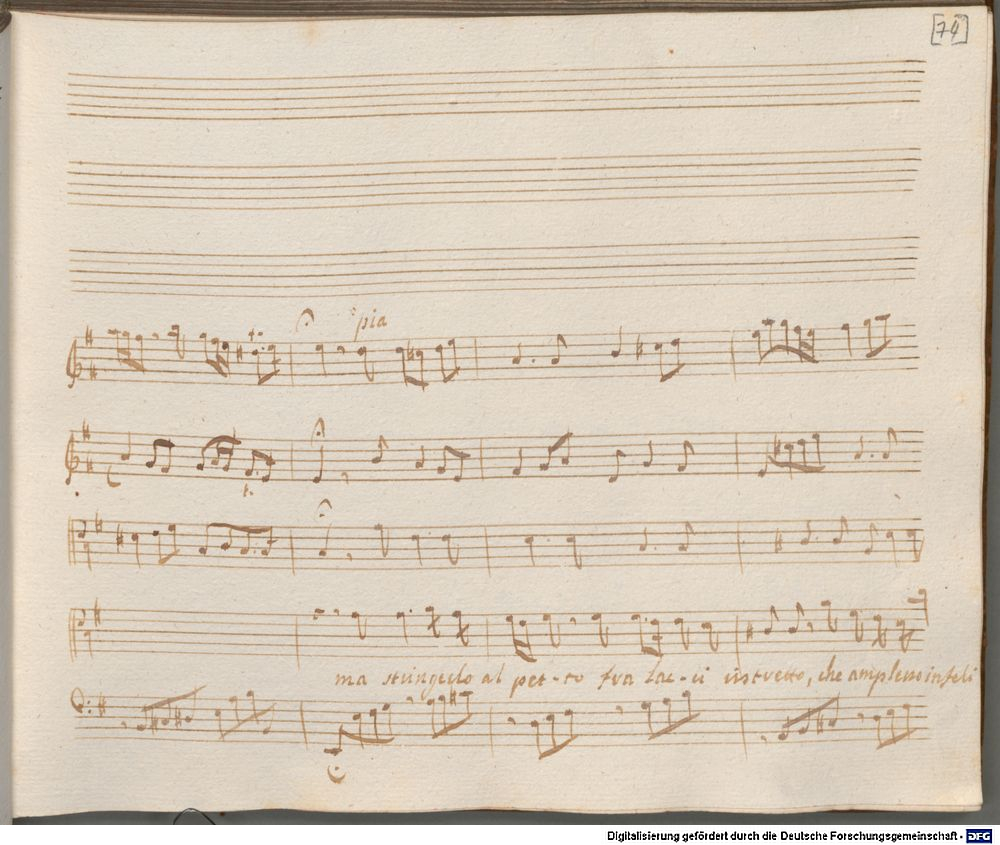 [74]
pia
ma stringerlo al pet-to fra lac-ci ristretto, che amplesso infeli
Digitalisierung gefördert durch die Deutsche Forschungsgemeinschaft - DFG